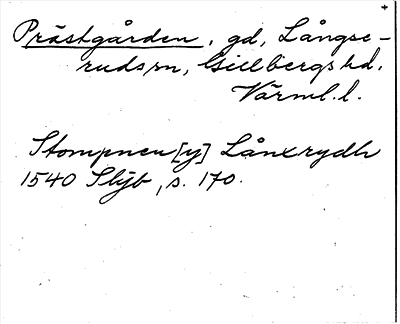 Prästgården, gd, Långse-
rudssn, Gillbergs hd.
Värml.l.
Stompneu [y] Lånxrydh
1540 Slijb, s. 170.